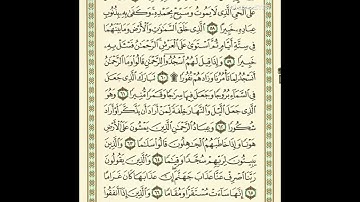 عَلَى ٱلْحَىِّ ٱلَّذِى لَا يَمُوتُ وَسَبِّحْ بِحَمْدِهِۦ ۚ وَكَفَىٰ بِهِۦ بِذُنُوبِ
عِبَادِهِۦ خَبِيرًا ٥٨ ٱلَّذِى خَلَقَ ٱلسَّمَٰوَٰتِ وَٱلْأَرْضَ وَمَا بَيْنَهُمَا
فِى سِتَّةِ أَيَّامٍ ثُمَّ ٱسْتَوَىٰ عَلَى ٱلْعَرْشِ ۚ ٱلرَّحْمَٰنُ فَسْـَٔلْ بِهِۦ
خَبِيرًا ٥٩ وَإِذَا قِيلَ لَهُمُ ٱسْجُدُوا۟ لِلرَّحْمَٰنِ قَالُوا۟ وَمَا ٱلرَّحْمَٰنُ
أَنَسْجُدُ لِمَا تَأْمُرُنَا وَزَادَهُمْ نُفُورًا ۩ ٦٠ تَبَارَكَ ٱلَّذِى جَعَلَ
فِى ٱلسَّمَآءِ بُرُوجًا وَجَعَلَ فِيهَا سِرَٰجًا وَقَمَرًا مُّنِيرًا ٦١ وَهُوَ
ٱلَّذِى جَعَلَ ٱلَّيْلَ وَٱلنَّهَارَ خِلْفَةً لِّمَنْ أَرَادَ أَن يَذَّكَّرَ أَوْ أَرَادَ
شُكُورًا ٦٢ وَعِبَادُ ٱلرَّحْمَٰنِ ٱلَّذِينَ يَمْشُونَ عَلَى ٱلْأَرْضِ
هَوْنًا وَإِذَا خَاطَبَهُمُ ٱلْجَٰهِلُونَ قَالُوا۟ سَلَٰمًا ٦٣ وَٱلَّذِينَ
يَبِيتُونَ لِرَبِّهِمْ سُجَّدًا وَقِيَٰمًا ٦٤ وَٱلَّذِينَ يَقُولُونَ
رَبَّنَا ٱصْرِفْ عَنَّا عَذَابَ جَهَنَّمَ ۖ إِنَّ عَذَابَهَا كَانَ غَرَامًا
٦٥ إِنَّهَا سَآءَتْ مُسْتَقَرًّا وَمُقَامًا ٦٦ وَٱلَّذِينَ إِذَآ أَنفَقُوا۟